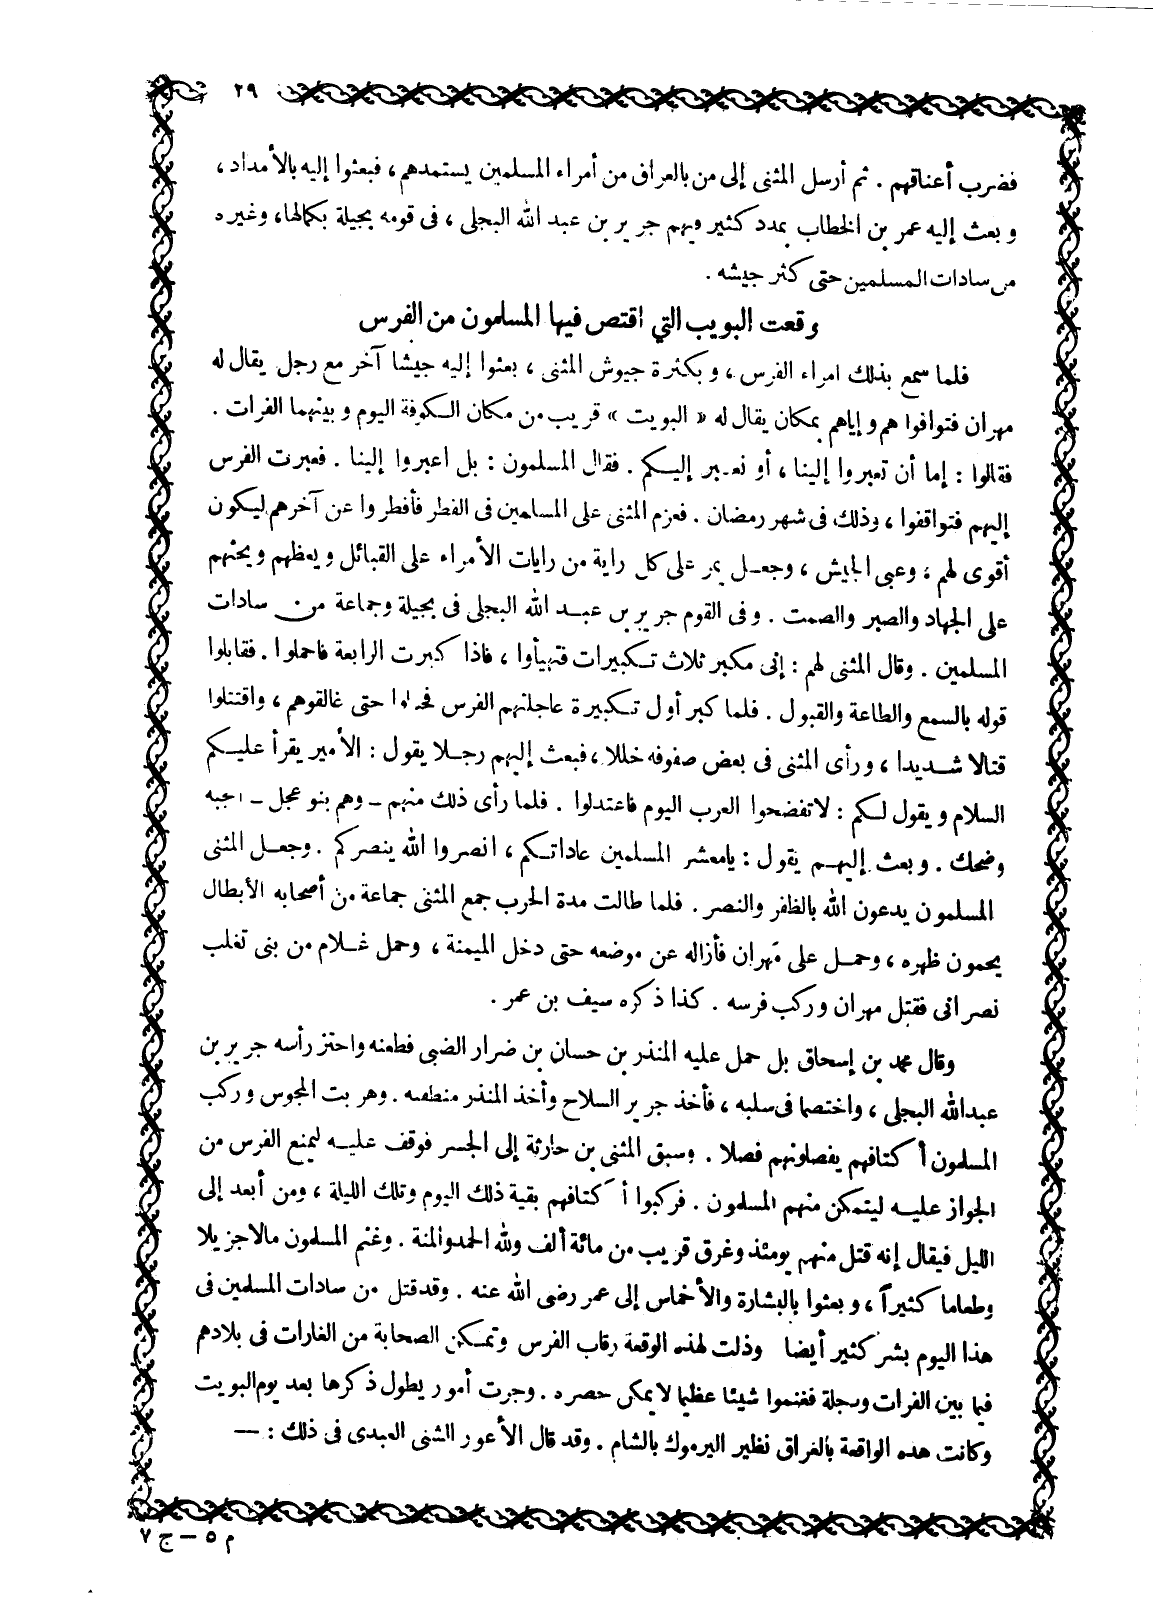 ٢٩
فضرب أعناقهم . ثم أرسل المثنى إلى من بالعراق من أمراء المسلمين يستمدهم ، فبعثوا إليه بالأمداد ،
وبعث إليه عمر بن الخطاب بمدد كثير فيهم جرير بن عبد الله البجلى ، فى قومه بجيلة بكمالها ، وغيره
من سادات المسلمين حتى كثر جيشه .
وقعت البويب التي اقتص فيها المسلمون من الفرس
فلما سمع بذلك امراء الفرس ، وبكثرة جيوش المثنى ، بعثوا إليه جيشا آخر مع رجل يقال له
مهران فتوافوا هم وإياهم بمكان يقال له « البويت » قريب من مكان الكوفة اليوم وبينهما الفرات .
فقالوا : إما أن تعبروا إلينا ، أو نعبر إليكم . فقال المسلمون : بل اعبروا إلينا . فعبرت الفرس
إليهم فتواقفوا ، وذلك فى شهر رمضان . فعزم المثنى على المسلمين فى الفطر فأفطروا عن آخرهم ليكون
أقوى لهم ، وعبى الجيش ، وجعل يمر على كل راية من رايات الأمراء على القبائل ويعظهم ويحثهم
على الجهاد والصبر والصمت . وفى القوم جرير بن عبد الله البجلى فى بجيلة وجماعة من سادات
المسلمين . وقال المثنى لهم : إنى مكبر ثلاث تكبيرات فتهيأوا ، فاذا كبرت الرابعة فاحملوا . فقابلوا
قوله بالسمع والطاعة والقبول . فلما كبر أول تكبيرة عاجلتهم الفرس فحملوا حتى غالقوهم ، واقتتلوا
قتالا شديدا ، ورأى المثنى فى بعض صفوفه خللا ، فبعث إليهم رجلا يقول : الأمير يقرأ عليكم
السلام ويقول لكم : لا تفضحوا العرب اليوم فاعتدلوا . فلما رأى ذلك منهم - وهم بنو عجل - أعجبه
وضحك . وبعث إليهم يقول : يا معشر المسلمين عاداتكم ، انصروا الله ينصركم . وجعل المثنى
المسلمون يدعون الله بالظفر والنصر . فلما طالت مدة الحرب جمع المثنى جماعة من أصحابه الأبطال
يحمون ظهره ، وحمل على مهران فأزاله عن موضعه حتى دخل الميمنة ، وحمل غلام من بنى تغلب
نصرانى فقتل مهران وركب فرسه . كذا ذكره سيف بن عمر .
وقال محمد بن إسحاق بل حمل عليه المنذر بن حسان بن ضرار الضبى فطعنه واحتز رأسه جرير بن
عبدالله البجلى ، واختصما فى سلبه ، فأخذ جرير السلاح وأخذ المنذر منطقته . وهربت المجوس وركب
المسلمون أكتافهم يفصلونهم فصلا . وسبق المثنى بن حارثة إلى الجسر فوقف عليه ليمنع الفرس من
الجواز عليه ليتمكن منهم المسلمون . فركبوا أكتافهم بقية ذلك اليوم وتلك الليلة ، ومن أبعد إلى
الليل فيقال إنه قتل منهم يومئذ وغرق قريب من مائة ألف ولله الحمد والمنة . وغنم المسلمون مالا جزيلا
وطعاما كثيراً ، وبعثوا بالبشارة والأخماس إلى عمر رضى الله عنه . وقد قتل من سادات المسلمين فى
هذا اليوم بشر كثير أيضا وذلت لهذه الوقعة رقاب الفرس وتمكن الصحابة من الغارات فى بلادهم
فيما بين الفرات ودجلة فغنموا شيئا عظيما لا يمكن حصره . وجرت أمور يطول ذكرها بعد يوم البويت
وكانت هذه الواقعة بالعراق نظير اليرموك بالشام . وقد قال الأعور الشنى العبدى فى ذلك : —
م ٥ – ج ٧